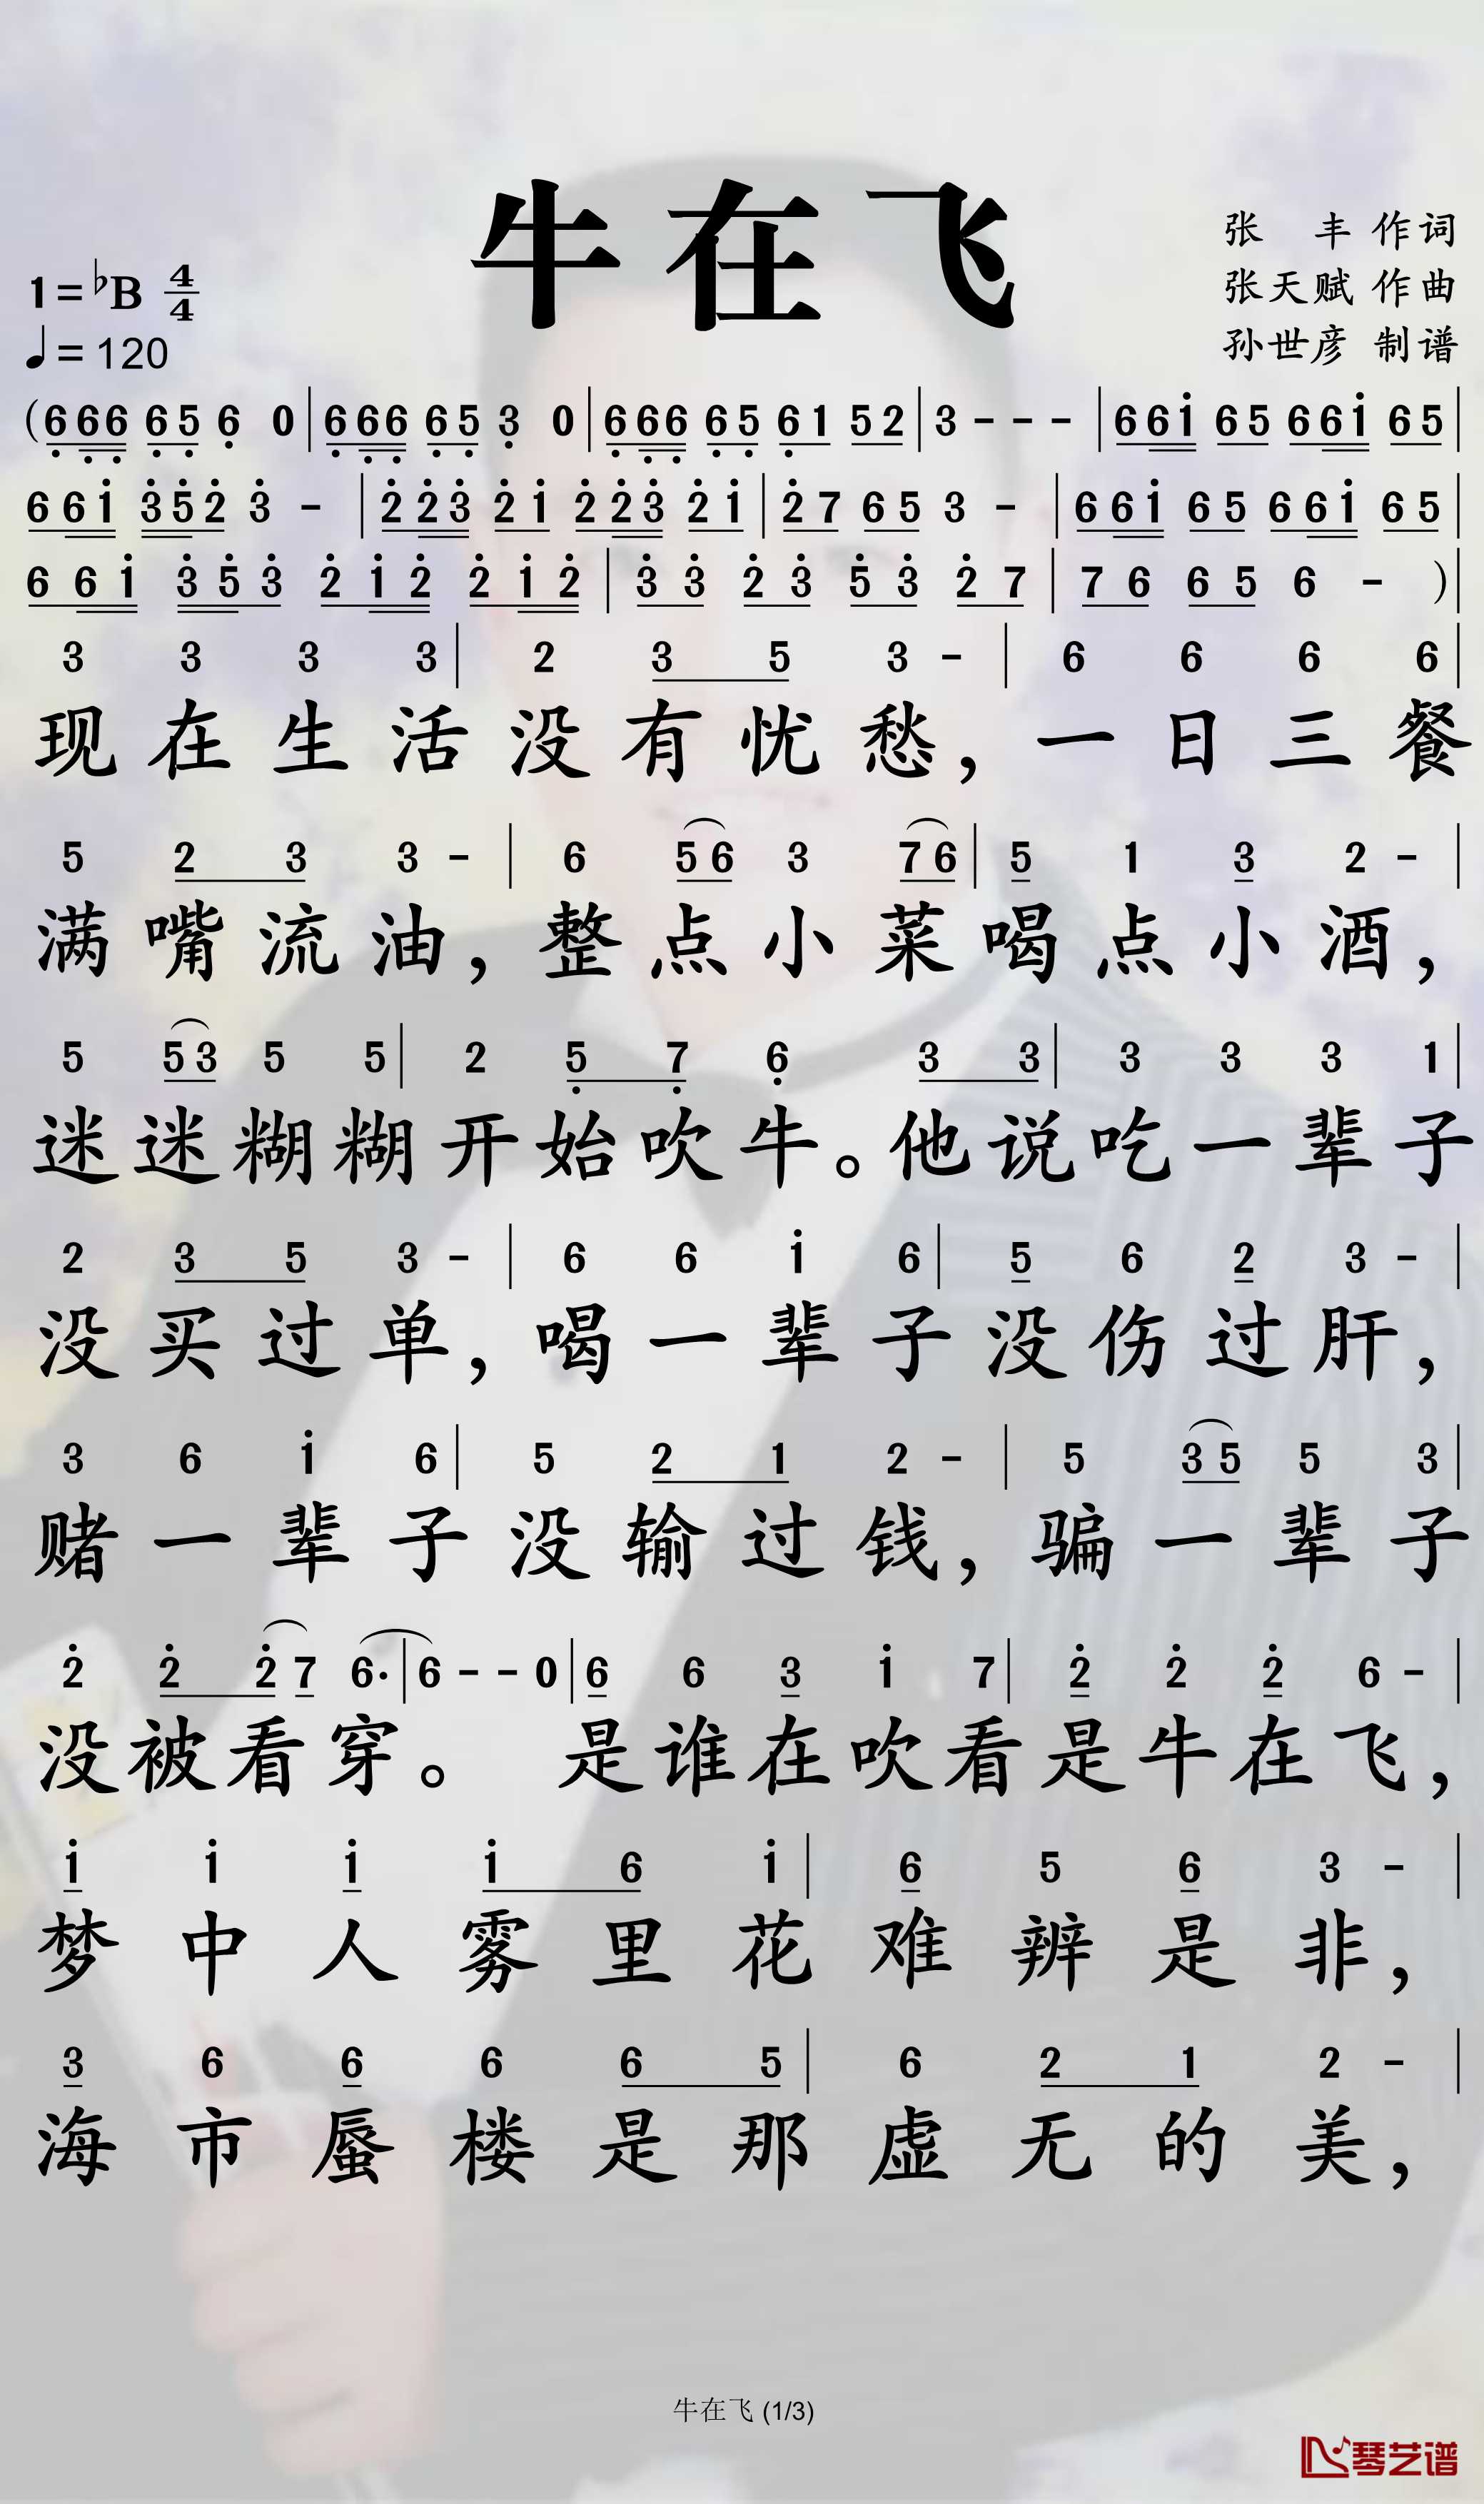 牛在飞
张 丰 作词
张天赋 作曲
孙世彦 制谱
1=♭B 4/4
♩=120
(6̣ 6̣6̣ 6̣5̣ 6̣ 0|6̣ 6̣6̣ 6̣5̣ 3̣ 0|6̣ 6̣6̣ 6̣5̣ 6̣1 52|3 - - -|6 6i 65 6 6i 65|
6 6i 3̇5̇2̇ 3̇ -|2̇ 2̇3̇ 2̇i 2̇ 2̇3̇ 2̇i|2̇7 65 3 -|6 6i 65 6 6i 65|
6 6 i 3̇ 5̇ 3̇ 2̇ i 2̇ 2̇ i 2̇|3̇ 3̇ 2̇ 3̇ 5̇ 3̇ 2̇ 7|7 6 6 5 6 - )|
3 3 3 3|2 3 5 3 -|6 6 6 6|
现在生活没有忧愁，一日三餐
5 2 3 3 -|6 56 3 76|5 1 3 2 -|
满嘴流油，整点小菜喝点小酒，
5 53 5 5|2 5̣ 7̣ 6̣ 3 3|3 3 3 1|
迷迷糊糊开始吹牛。他说吃一辈子
2 3 5 3 -|6 6 i 6|5 6 2 3 -|
没买过单，喝一辈子没伤过肝，
3 6 i 6|5 2 1 2 -|5 35 5 3|
赌一辈子没输过钱，骗一辈子
2̇ 2̇ 2̇7 6·|6 - - 0|6 6 3 i 7|2̇ 2̇ 2̇ 6 -|
没被看穿。 是谁在吹看是牛在飞，
i i i i 6 i|6 5 6 3 -|
梦中人雾里花难辨是非，
3 6 6 6 6 5|6 2 1 2 -|
海市蜃楼是那虚无的美，
牛在飞 (1/3)
琴艺谱